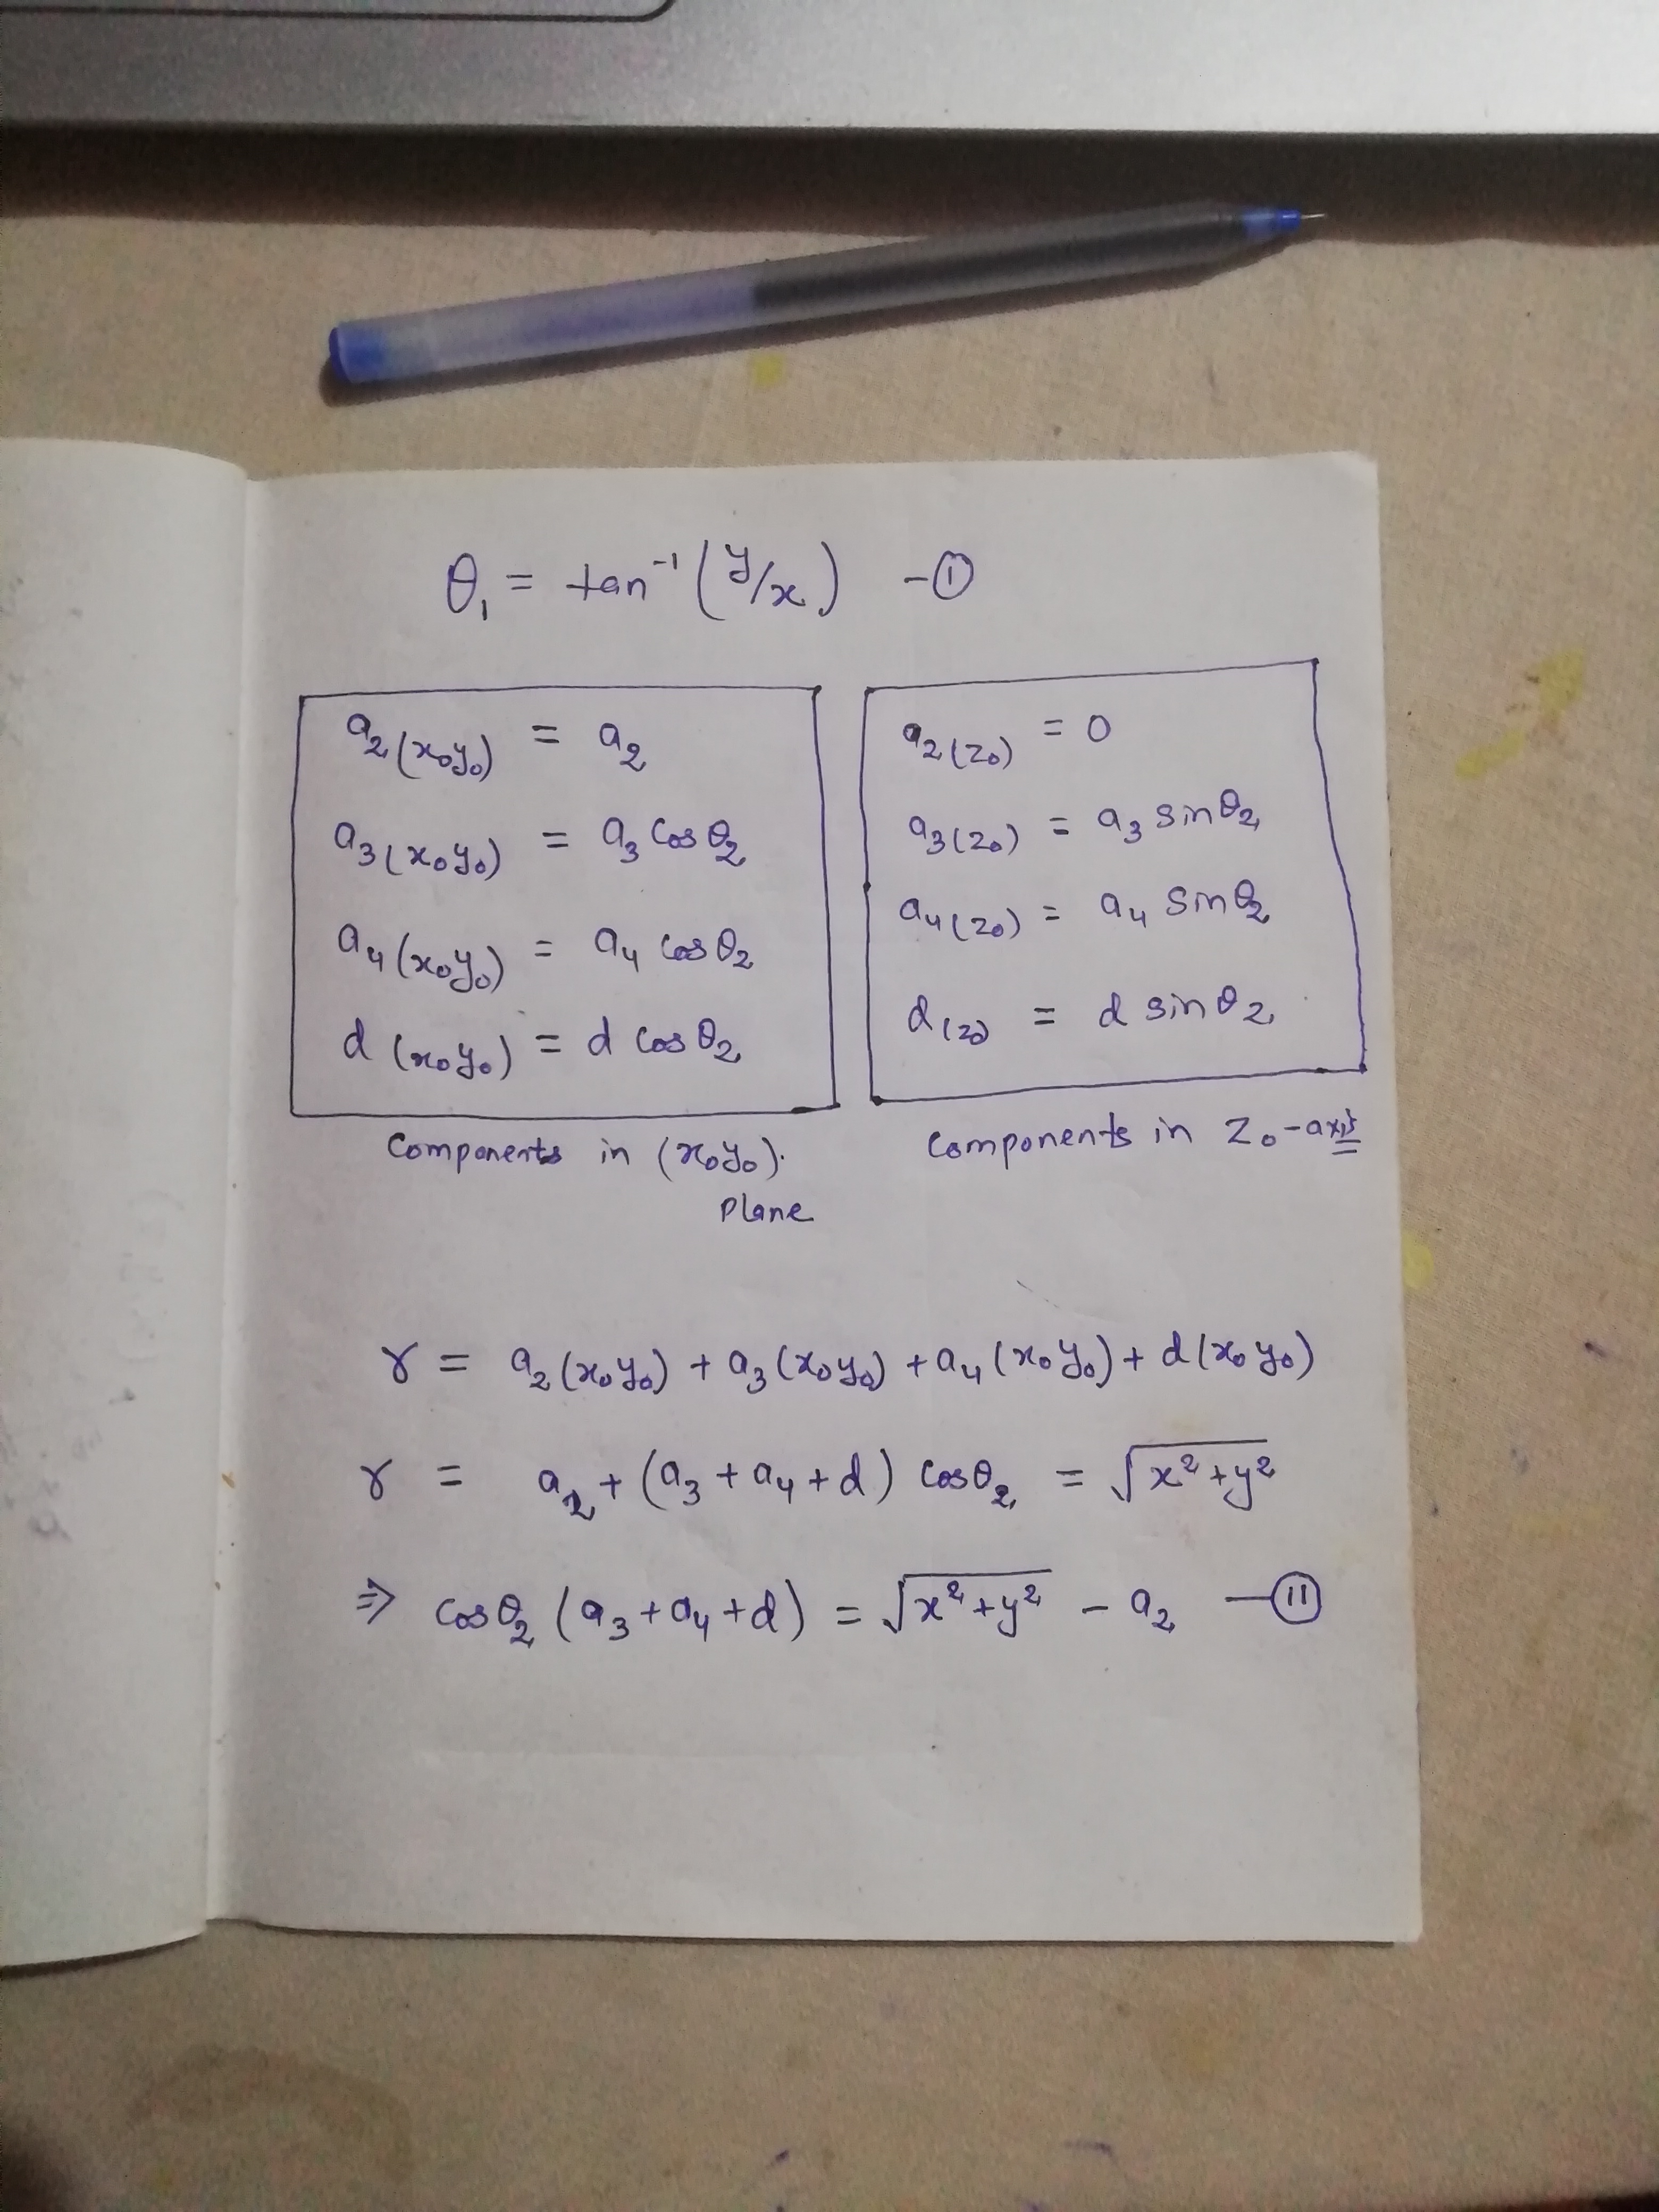 θ₁ = tan⁻¹ (y/x) -①
a₂(x₀y₀) = a₂
a₃(x₀y₀) = a₃ cos θ₂
a₄(x₀y₀) = a₄ cos θ₂
d (x₀y₀) = d cos θ₂
Components in (x₀y₀).
Plane
a₂(z₀) = 0
a₃(z₀) = a₃ sin θ₂
a₄(z₀) = a₄ sin θ₂
d(z₀) = d sin θ₂
Components in Z₀-axis
r = a₂(x₀y₀) + a₃(x₀y₀) + a₄(x₀y₀) + d(x₀y₀)
r = a₂ + (a₃ + a₄ + d) cos θ₂ = √(x²+y²)
⇒ cos θ₂ (a₃ + a₄ + d) = √(x²+y²) - a₂ —⑪